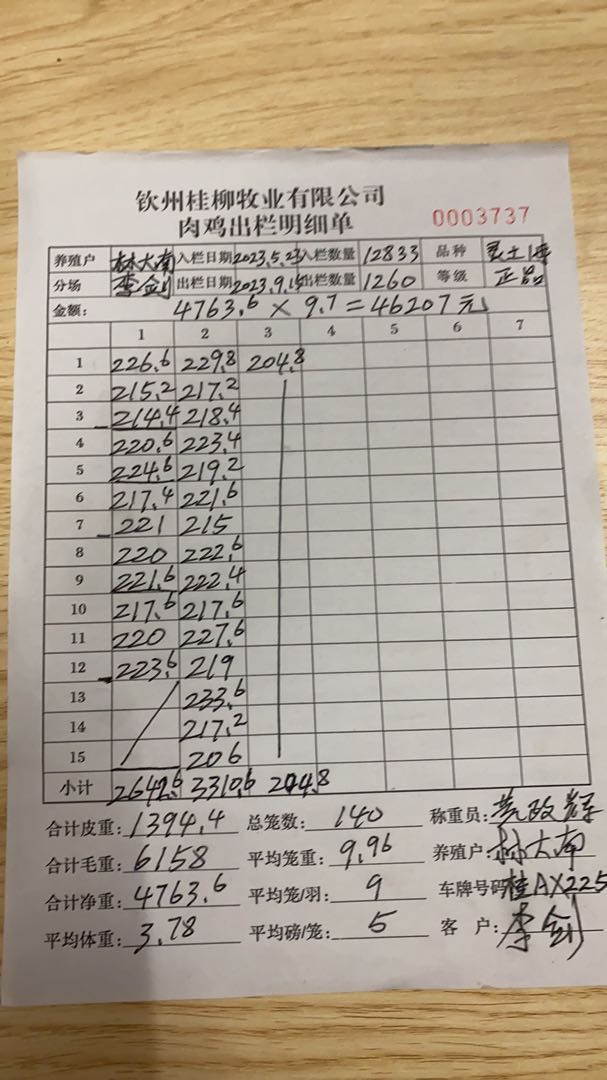 钦州桂柳牧业有限公司
肉鸡出栏明细单 0003737
养殖户 林大南 入栏日期 2023.5.23 入栏数量 12833 品种 灵土1号
分场 李剑 出栏日期 2023.9.15 出栏数量 1260 等级 正品
金额: 4763.6 × 9.7 = 46207元
1 2 3 4 5 6 7
1 226.6 229.8 204.8
2 215.2 217.2
3 214.4 218.4
4 220.6 223.4
5 224.6 219.2
6 217.4 221.6
7 221 215
8 220 222.6
9 221.6 222.4
10 217.6 217.6
11 220 227.6
12 223.6 219
13 233.6
14 217.2
15 206
小计 2642.6 3310.6 204.8
合计皮重: 1394.4 总笼数: 140 称重员:
合计毛重: 6158 平均笼重: 9.96 养殖户: 林大南
合计净重: 4763.6 平均笼/羽: 9 车牌号码 桂AX225
平均体重: 3.78 平均磅/笼: 5 客户: 李剑